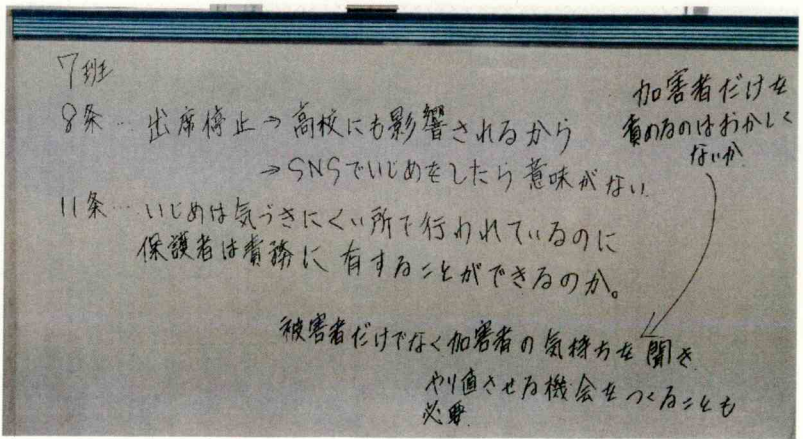 7班
8条…出席停止→高校にも影響されるから
→SNSでいじめをしたら意味がない
11条…いじめは気づきにくい所で行われているのに
保護者は責務に有することができるのか。
加害者だけを
責めるのはおかしく
ないか
被害者だけでなく加害者の気持ちを聞き
やり直させる機会をつくることも
必要